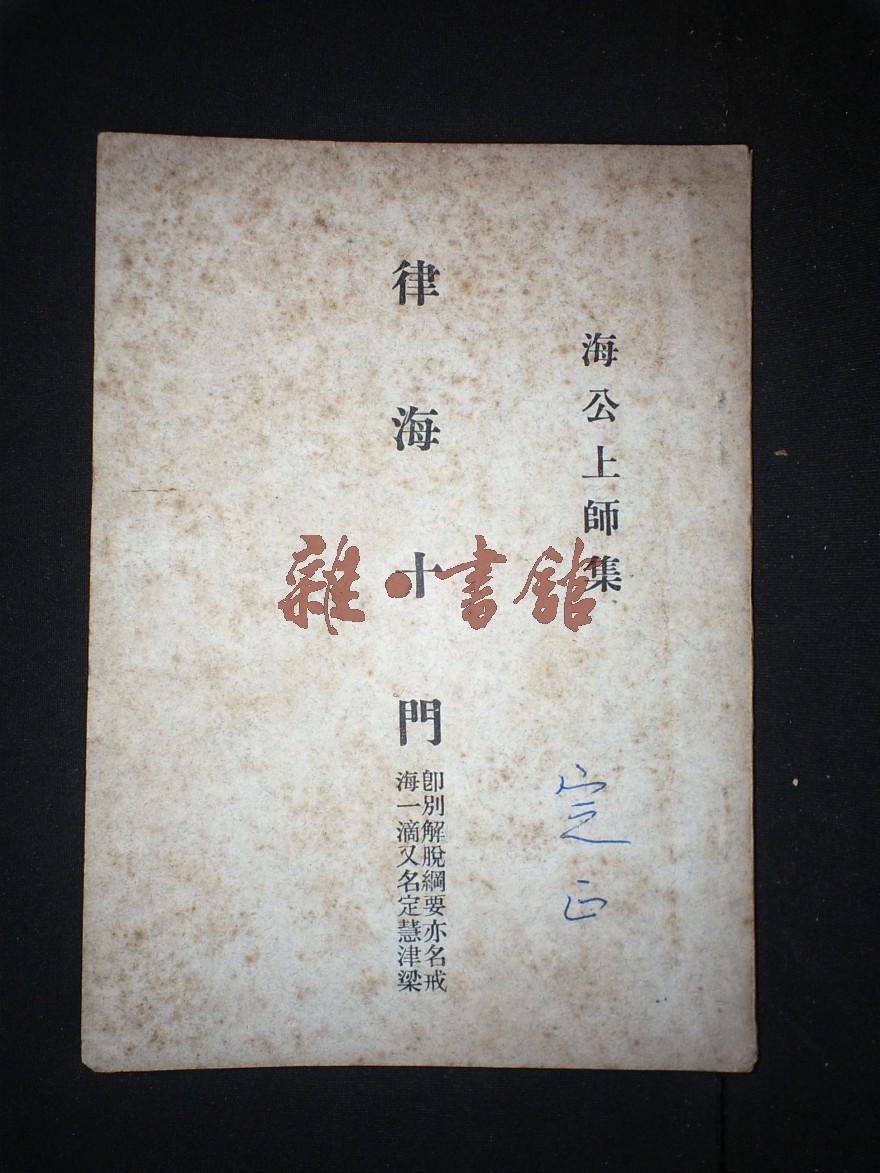 海公上師集
律海十門
卽別解脫綱要亦名戒
海一滴又名定慧津梁
定正
雜·書館